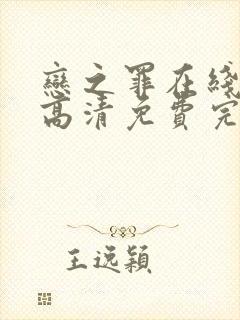 戀之罪在綫
高清免費完
王远穎